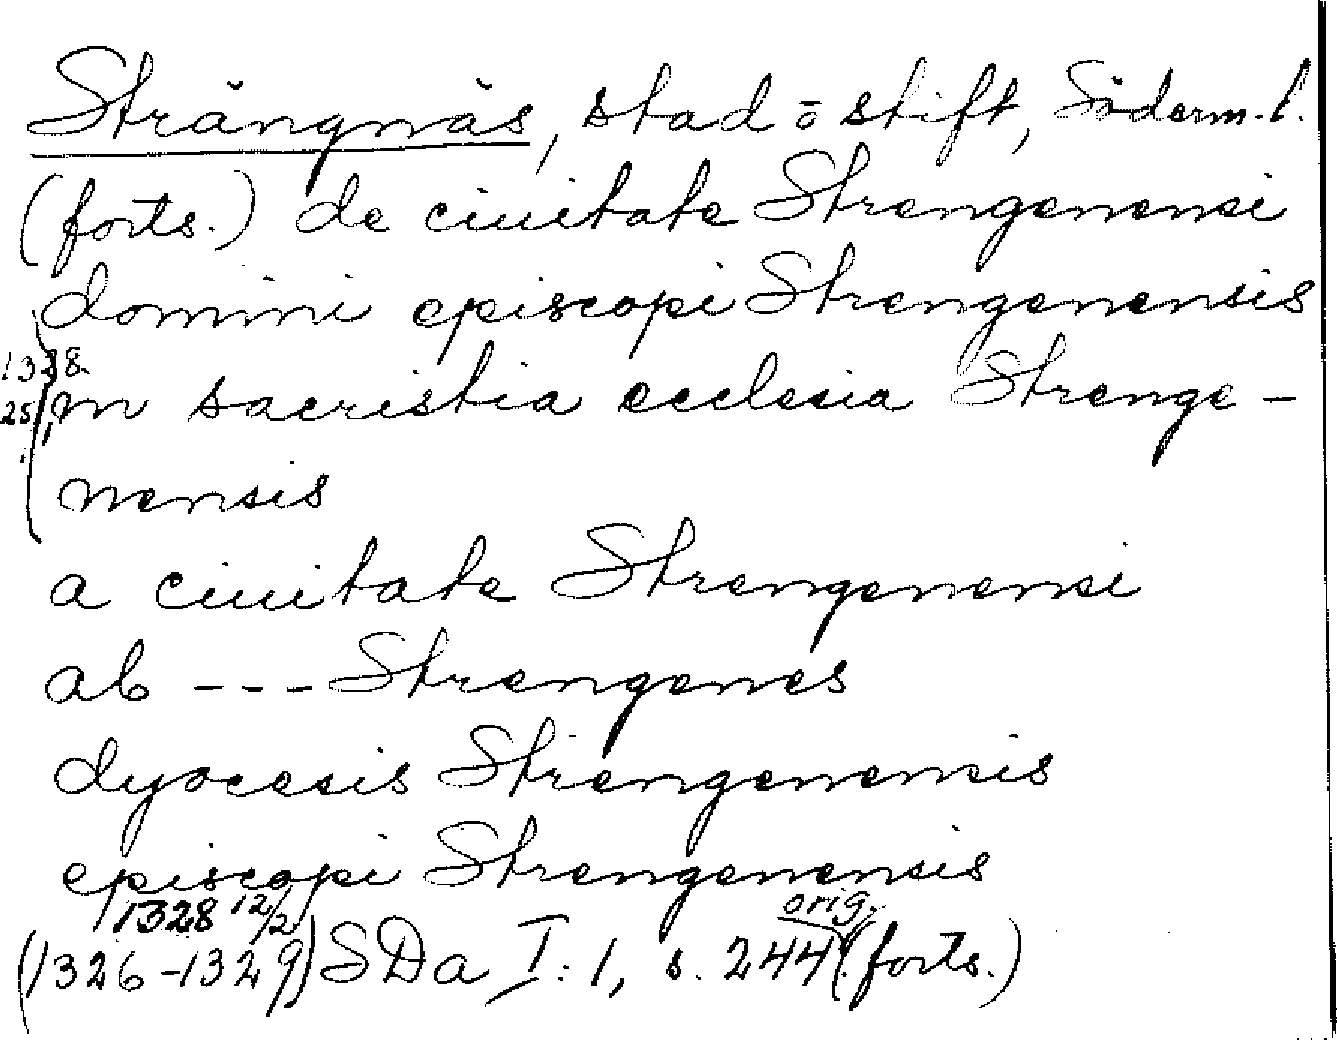 Strängnäs, stad o stift, Söderm. l.
(forts.) de ciuitate Strengenensi
domini episcopi Strengenensis
1328
25/
in sacristia ecclesia Strenge-
nensis
a ciuitate Strengenensi
ab --- Strengenes
dyocesis Strengenensis
episcopi Strengenensis
1328 12/2 orig.
(1326-1329) SDa I:1, s. 244 (forts.)